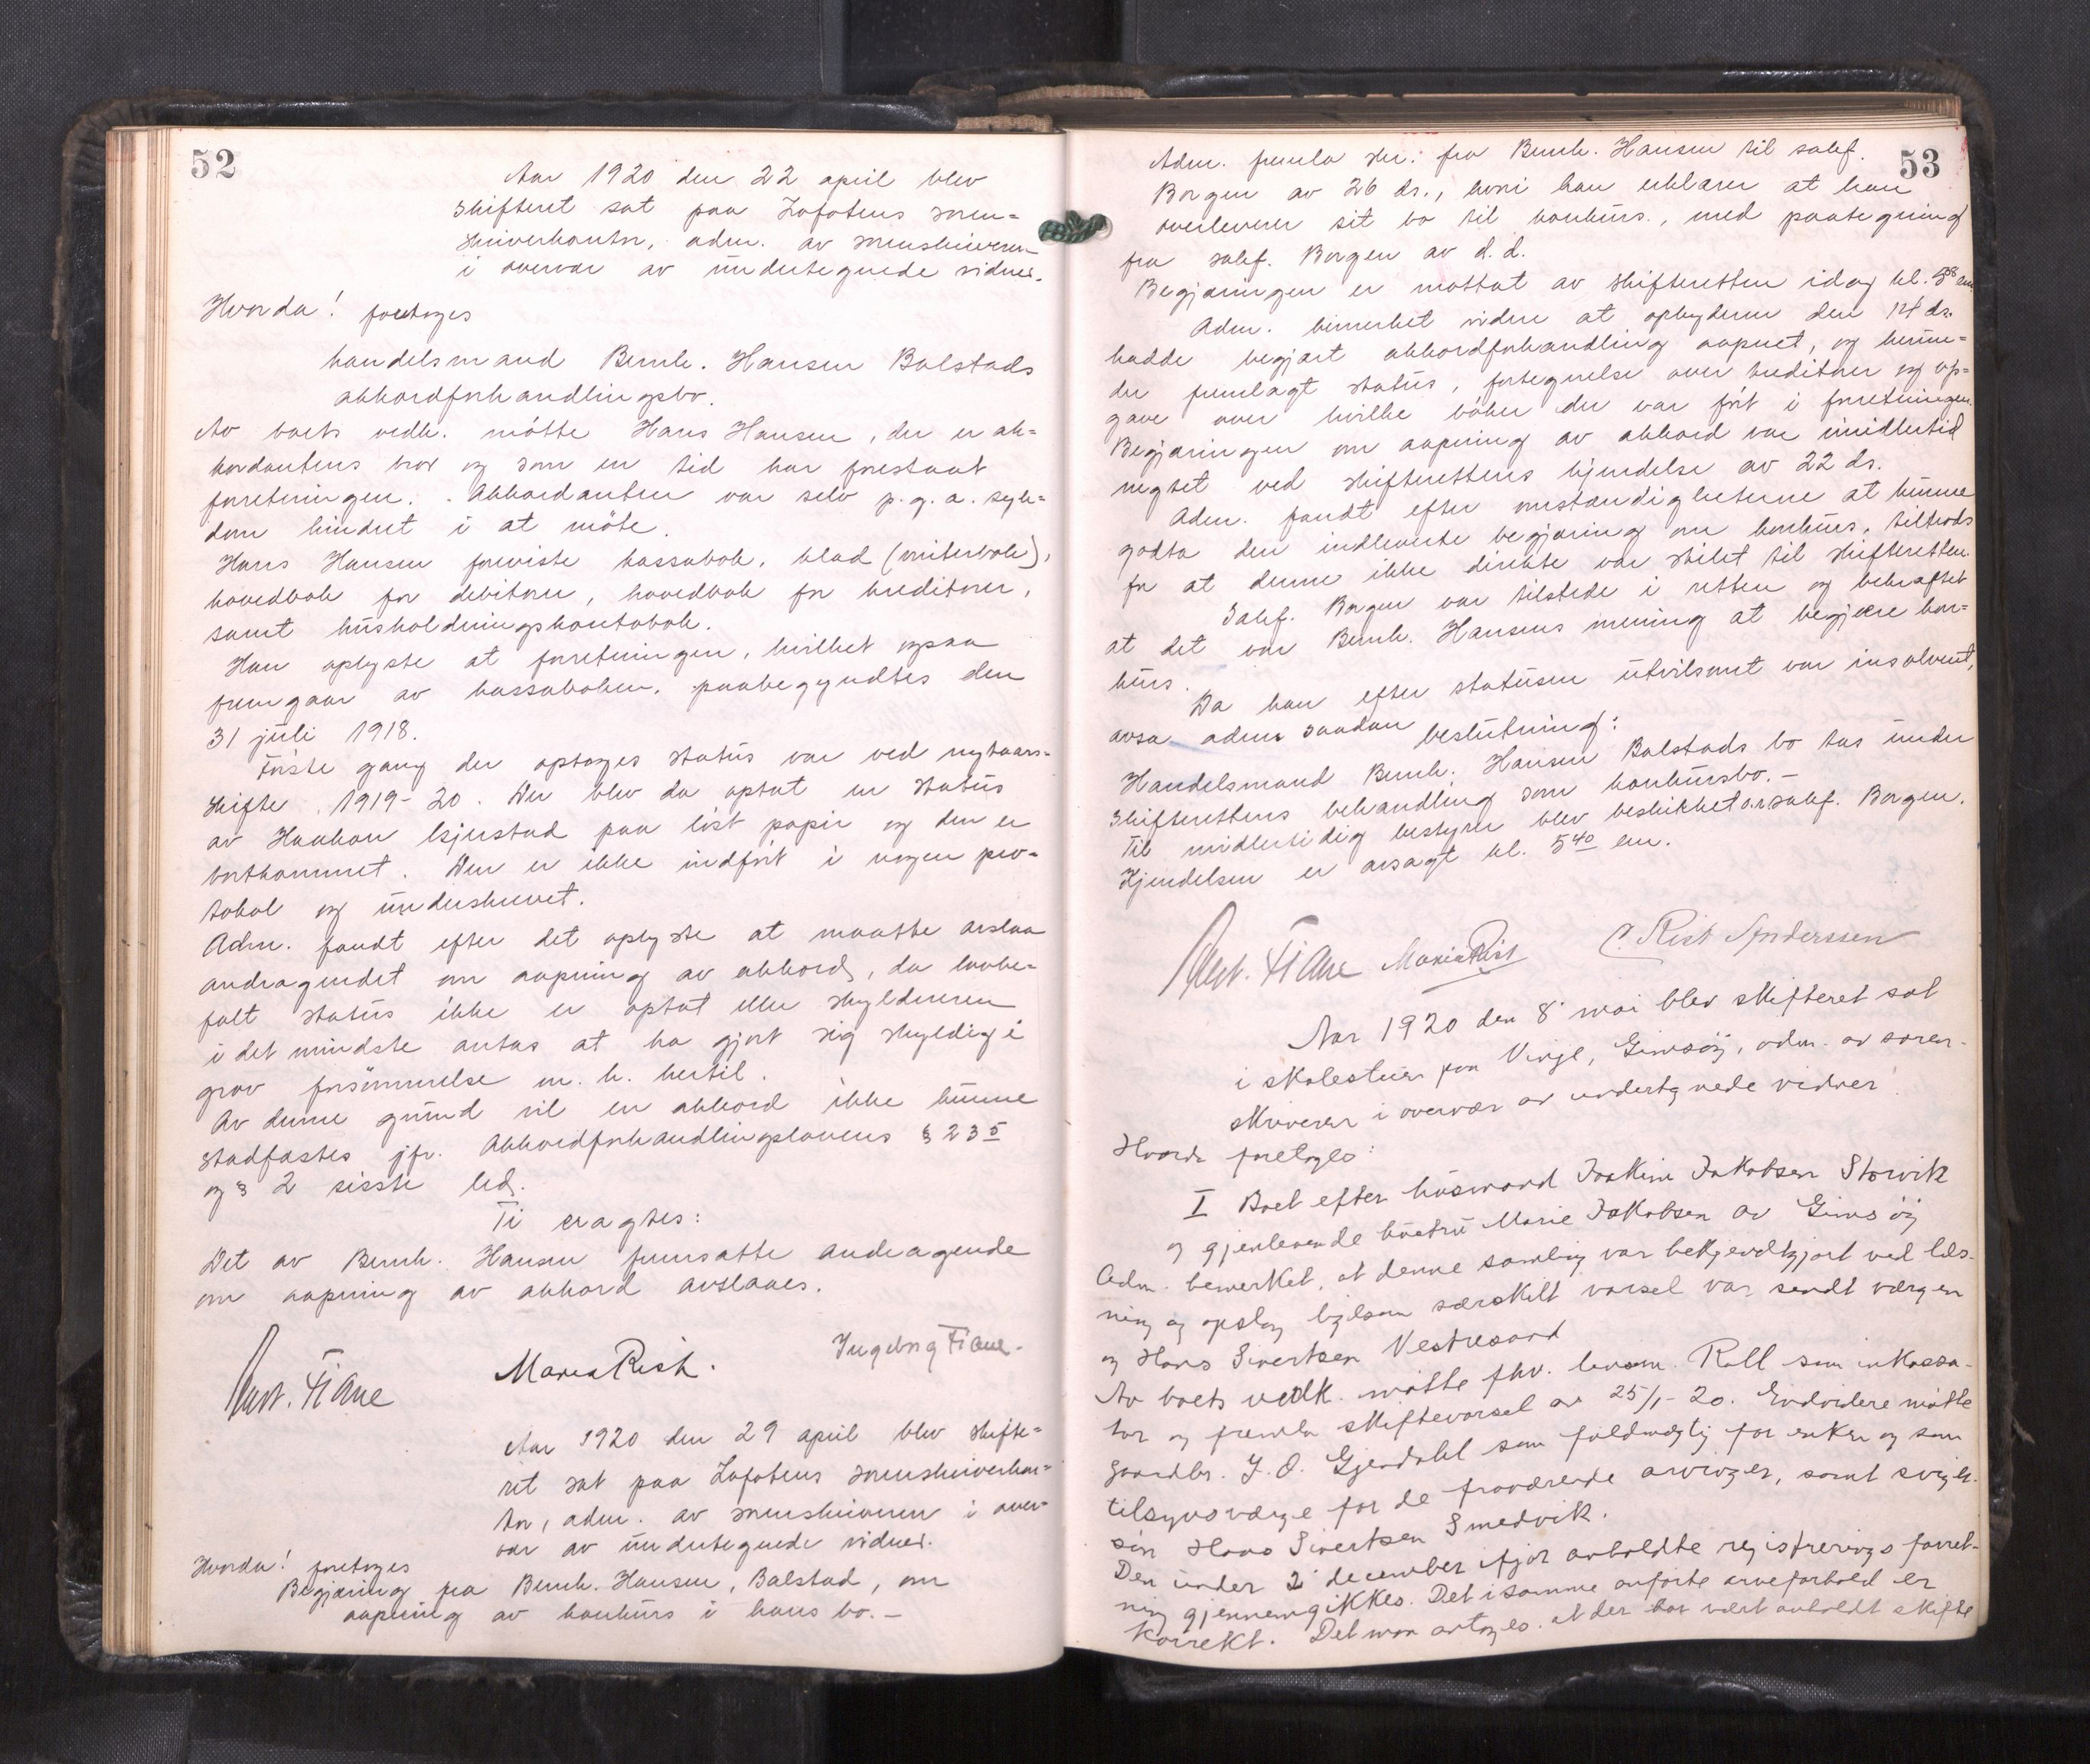 52
Aar 1920 den 22 april blev
skifteret sat paa Lofotens soren=
skriverkontor, adm. av sorenskriveren
i overvær av undertegnede vidner.
Hvorda! foretoges
handelsmand Bernh. Hansen Balstads
akkordforhandlingsbo.
Av boets vedk. møtte Hans Hansen, der er ak=
kordantens bror og som en tid har forestaat
forretningen. Akkordanten var selv p.g.a. syk=
dom hindret i at møte.
Hans Hansen foreviste kassabok, klad (noiterbok),
hovedbok for debitorer, hovedbok for kreditorer,
samt husholdningskontobok.
Han oplyste at forretningen, hvilket ogsaa
fremgaar av kassaboken, paabegyndtes den
31 juli 1918.
Første gang der optoges status var ved nytaars-
skifte 1919-20. Der blev da optat en status
av Haakon Kjerstad paa løst papir og den er
bortkommet. Den er ikke indført i nogen pro-
tokol og underskrevet.
Adm. fandt efter det oplyste at maatte avslaa
andragendet om aapning av akkord, da lovbe-
falt status ikke er optat eller skyldneren
i det mindste antas at ha gjort sig skyldig i
grov forsømmelse m. h. hertil.
Av denne grund vil en akkord ikke kunne
stadfæstes jfr. Akkordforhandlingslovens § 23 5
og § 2 sisste led.
Ti eragtes:
Det av Bernh. Hansen fremsatte andragende
om aapning av akkord avslaaes.
Fiane Maria Rist. Ingeborg Fiane.
Aar 1920 den 29 april blev skifte=
ret sat paa Lofotens sorenskriverkon=
tor, adm. av sorenskriveren i over=
vær av undertegnede vidner.
Hvorda! foretoges
Begjæring fra Bernh. Hansen, Balstad, om
aapning av konkurs i hans bo. -
53
Adm. fremla skr. fra Bernh. Hansen til sakf.
Borgen av 26 ds., hvori han erklærer at han
overleverer sit bo til konkurs, med paategning
fra sakf. Borgen av d. d.
Begjæringen er mottat av skifteretten idag kl. 5
Adm. bemerket videre at opbyderen den 14 ds.
hadde begjært akkordforhandling aapnet, og herun=
der fremlagt status, fortegnelse over kreditorer og op=
gave over hvilke bøker der var ført i forretningen.
Begjæringen om aapning av akkord var imidlertid
negtet ved skifterettens kjendelse av 22 ds.
Adm. fandt efter omstændigheterne at kunne
godta den indleverte begjæring om konkurs, tiltrods
for at denne ikke direkte var stilet til skifteretten.
Sakf. Borgen var tilstede i retten og bekræftet
at det var Bernh. Hansens mening at begjære kon=
kurs.
Da han efter statusen utvilsomt var insolvent,
avsa adm. saadan beslutning:
Handelsmand Bernh. Hansen Balstads bo tas under
skifterettens behandling som konkursbo. -
Til midlertidig bestyrer blev beskikket o.r.sakf. Borgen.
Kjendelsen er avsagt kl. 5 40 em.
Fiane Maria Rist Rist Anderssen
Aar 1920 den 8 mai blev skifteret sat
i skolestuen paa Vinje, Gimsøy, adm. av soren-
skriveren i overvær av undertegnede vidner
Hvorda foretoges:
I Boet efter husmand Joakim Jakobsen Storvik
og gjenlevende hustru Marie Jakobsen av Gimsøy
Adm. bemerket, at denne samling var bekjendtgjort ved læs-
ning og opslag likesom særskilt varsel var sendt værgen
og Hans Sivertsen Vestresand
Av boets vedk. møtte fhv. lensm. Roll som inkassa-
tor og fremla skiftevarsel av 25/1-20. Endvidere møtte
gaardbr. J. O. Gjendahl som fuldmægtig for enken og som
tilsynsværge for de fraværende arvinger, samt sviger-
søn Hans Sivertsen Smedvik.
Den under 2 december ifjor avholdte registreringsforret-
ning gjennemgikkes. Det i samme anførte arveforhold er
korrekt. Det maa antages at der har vært avholdt skifte